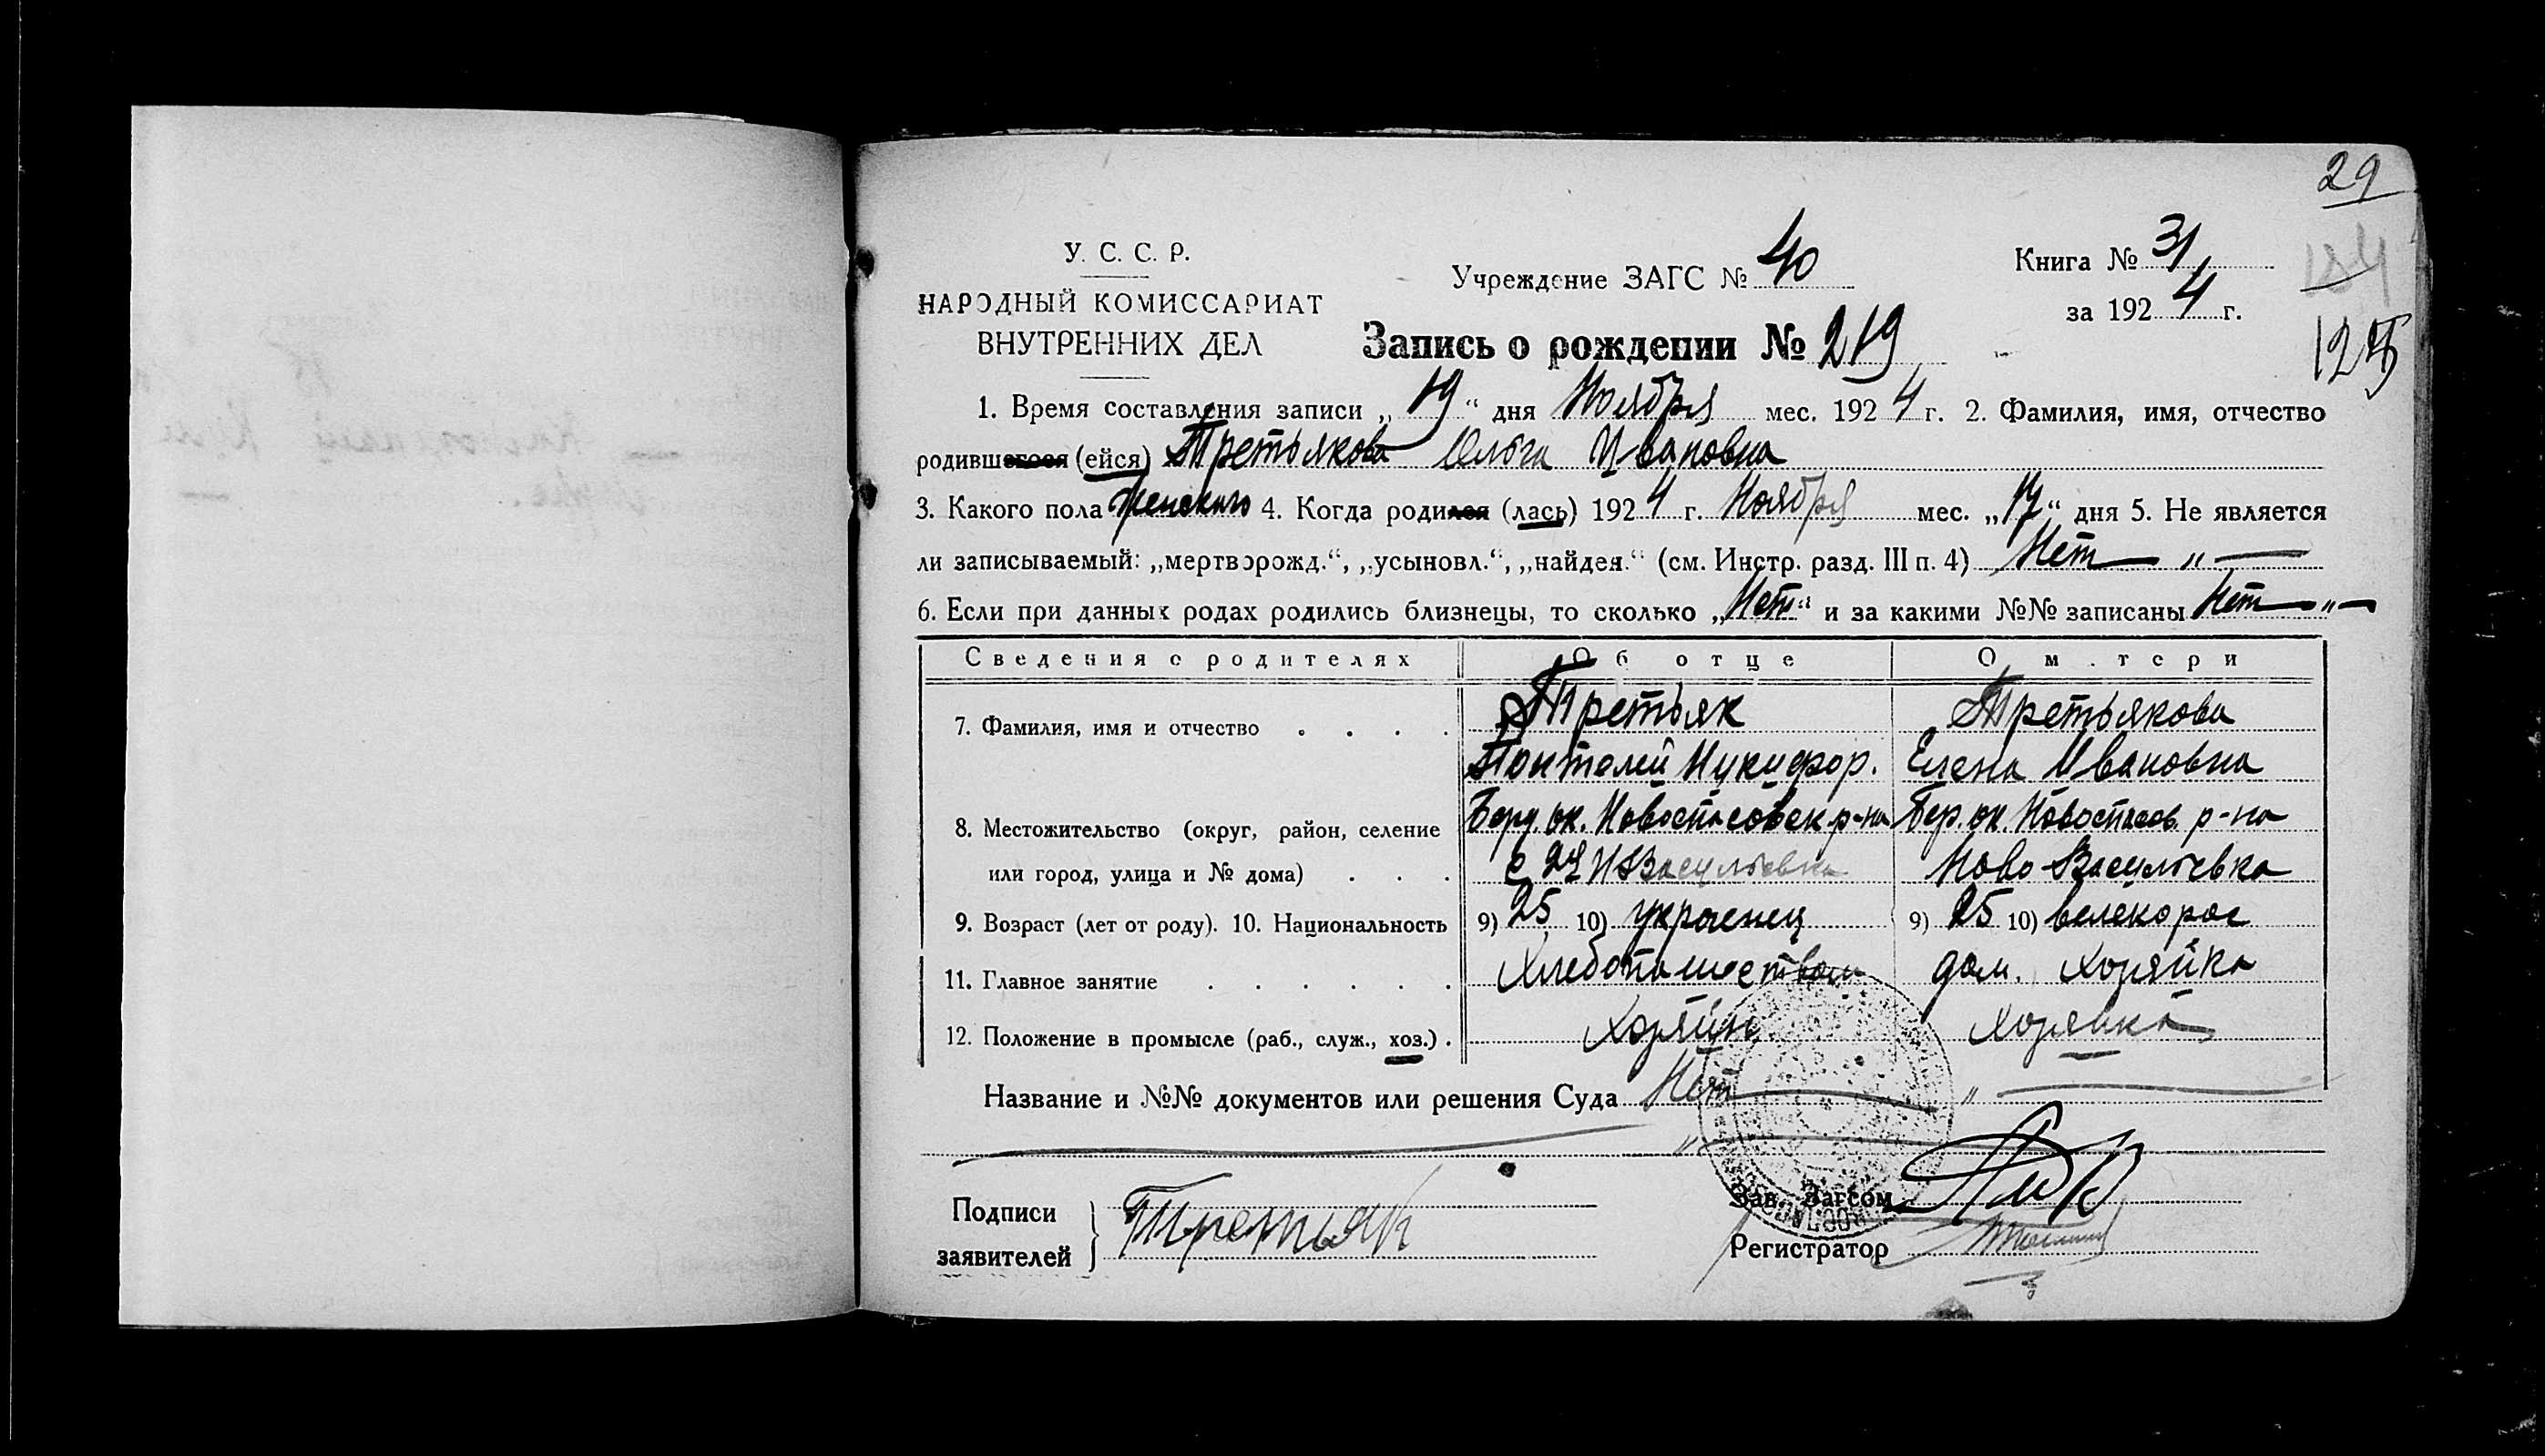 29
У. С. С. Р.
Учреждение ЗАГС № 40
Книга № 31
184
НАРОДНЫЙ КОМИССАРИАТ
за 1924 г.
ВНУТРЕННИХ ДЕЛ
Запись о рождении № 219
1. Время составления записи „19“ дня Ноября мес. 1924 г. 2. Фамилия, имя, отчество
родившегося (ейся) Третьякова Ольга Ивановна
3. Какого пола женского 4. Когда родился (лась) 1924 г. Ноября мес. „17“ дня 5. Не является
ли записываемый: „мертворожд.“, „усыновл.“, „найден.“ (см. Инстр. разд. III п. 4) Нет — „ —
6. Если при данных родах родились близнецы, то сколько „Нет“ и за какими №№ записаны Нет — „ —
Сведения о родителях Об отце О матери
7. Фамилия, имя и отчество . . . . Третьяк Третьякова
Понтелей Никифор. Елена Ивановна
8. Местожительство (округ, район, селение Берд. ок. Новоспасовск р-на Бер. ок. Новоспасов. р-на
или город, улица и № дома) . . . с Васильевка Ново Васильевка
9. Возраст (лет от роду). 10. Национальность 9) 25 10) украенец 9) 25 10) велекорос
11. Главное занятие . . . . . . Хлебопашеством дом. хозяйка
12. Положение в промысле (раб., служ., хоз.) . Хозяин хозяйка
Название и №№ документов или решения Суда Нет — „ —
„
Подписи
заявителей
Третьяк
Зав. Загсом
Регистратор